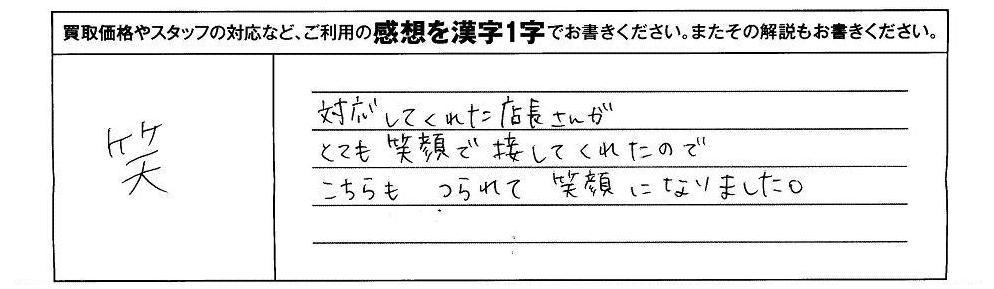 買取価格やスタッフの対応など、ご利用の感想を漢字1字でお書きください。またその解説もお書きください。
笑
対応してくれた店長さんが
とても笑顔で接してくれたので
こちらも つられて 笑顔になりました。